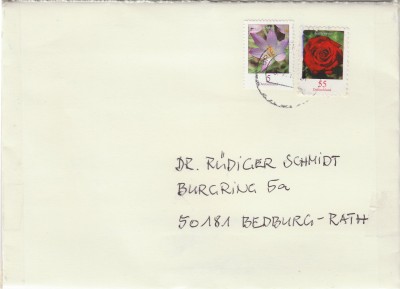 5
55
DR. RÜDIGER SCHMIDT
BURGRING 5a
50181 BEDBURG-RATH